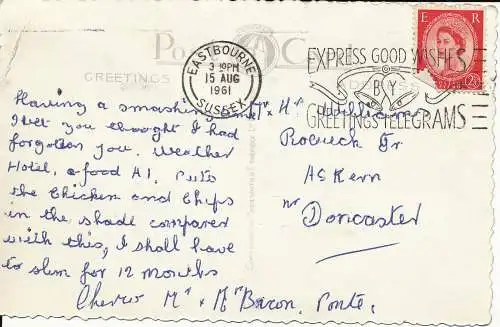 Post Ca
GREETINGS
EASTBOURNE
3 30PM
15 AUG
1961
SUSSEX
EXPRESS GOOD WISHES
BY
GREETINGS TELEGRAMS
E R
2½
Having a smashing time
I bet you thought I had
forgotten you. Weather
Hotel, & food A1. Puts
the Chicken and Chips
in the shade compared
with this, I shall have
to slim for 12 months
Cheers Mr & Mrs Bacon. Ponte.
Mr & Mrs Williams
Tr
Askern
nr
Doncaster